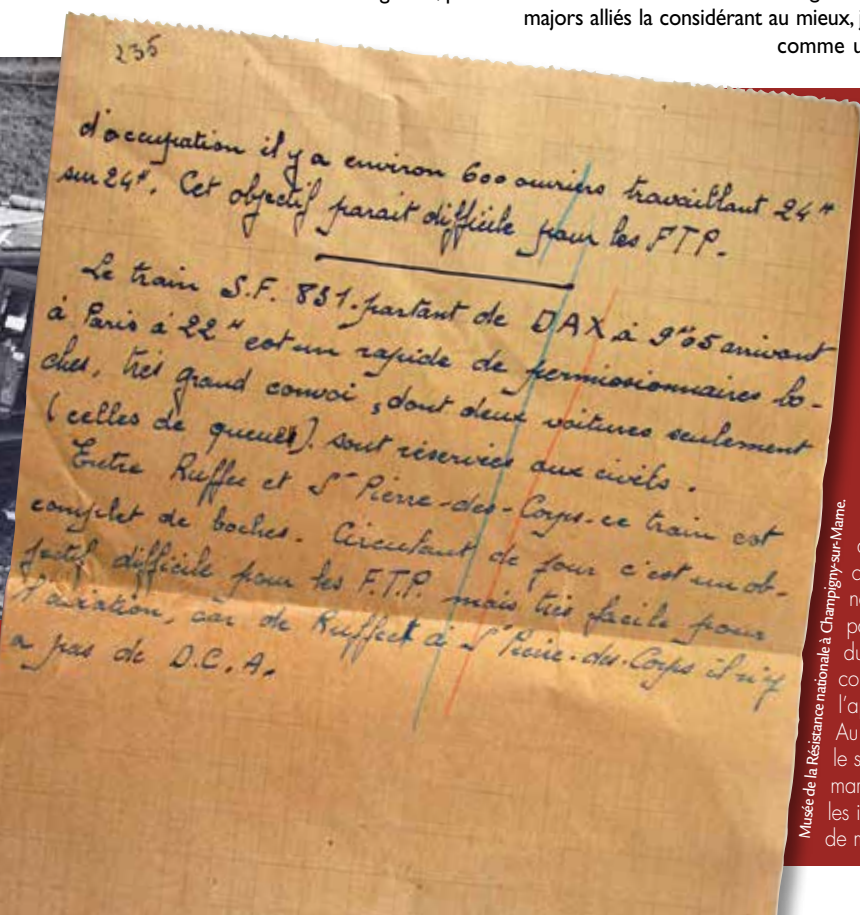 majors alliés la considérant au mieux,
comme u
235
d'occupation il y a environ 600 ouvriers travaillant 24H
sur 24H. Cet objectif parait difficile pour les FTP.
Le train S.F. 831. partant de DAX à 9H05 arrivant
à Paris à 22H est un rapide de permissionnaires bo-
ches, très grand convoi, dont deux voitures seulement
(celles de queues). sont réservées aux civils.
Entre Ruffec et St Pierre-des-Corps-ce train est
complet de boches. Circulant de jour c'est un ob-
jectif difficile pour les F.T.P. mais très facile pour
l'aviation, car de Ruffect à St Pierre-des-Corps il n'y
a pas de D.C.A.
Musée de la Résistance nationale à Champigny-sur-Marne.
du
l'a
Au
le s
les i
de